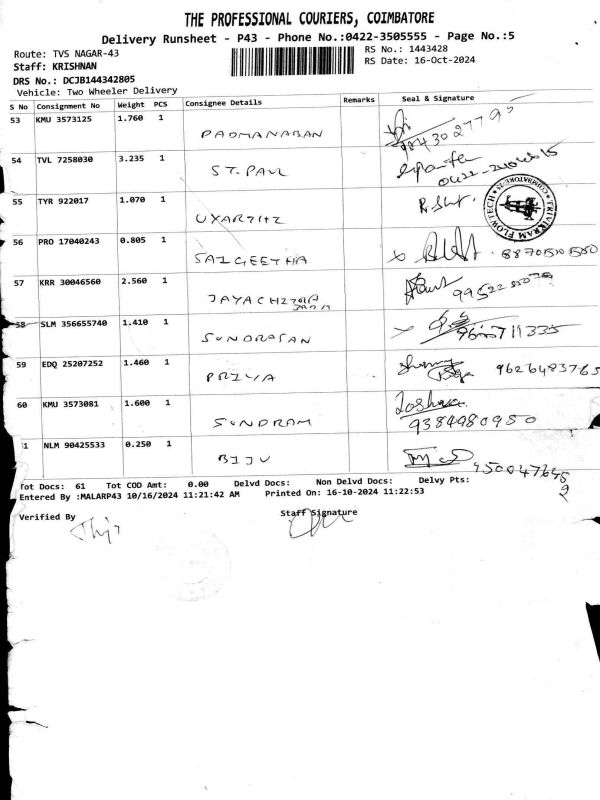 THE PROFESSIONAL COURIERS, COIMBATORE
Delivery Runsheet - P43 - Phone No.:0422-3505555 - Page No.:5
Route: TVS NAGAR-43
RS No.: 1443428
Staff: KRISHNAN
RS Date: 16-Oct-2024
DRS No.: DCJB144342805
Vehicle: Two Wheeler Delivery
S No Consignment No Weight PCS Consignee Details Remarks Seal & Signature
53 KMU 3573125 1.760 1 PADMANABAN
54 TVL 7258030 3.235 1 ST. PAUL
55 TYR 922017 1.070 1 TRIVIKRAM FLOWTECH * COIMBATORE
56 PRO 17040243 0.805 1 SAIGEETHA
57 KRR 30046560 2.560 1
58 SLM 356655740 1.410 1 SUNDRASAN
59 EDQ 25207252 1.460 1 PRIYA 9626483765
60 KMU 3573081 1.600 1 SUNDRAM Joshua 9384980950
1 NLM 90425533 0.250 1 BIJU
Tot Docs: 61 Tot COD Amt: 0.00 Delvd Docs: Non Delvd Docs: Delvy Pts:
Entered By :MALARP43 10/16/2024 11:21:42 AM Printed On: 16-10-2024 11:22:53
Verified By Staff Signature